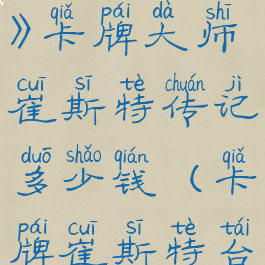 qiǎ pái dà shī
》卡牌大师
cuī sī tè chuán jì
崔斯特传记
duō shǎo qián qiǎ
多少钱（卡
pái cuī sī tè tái
牌崔斯特台